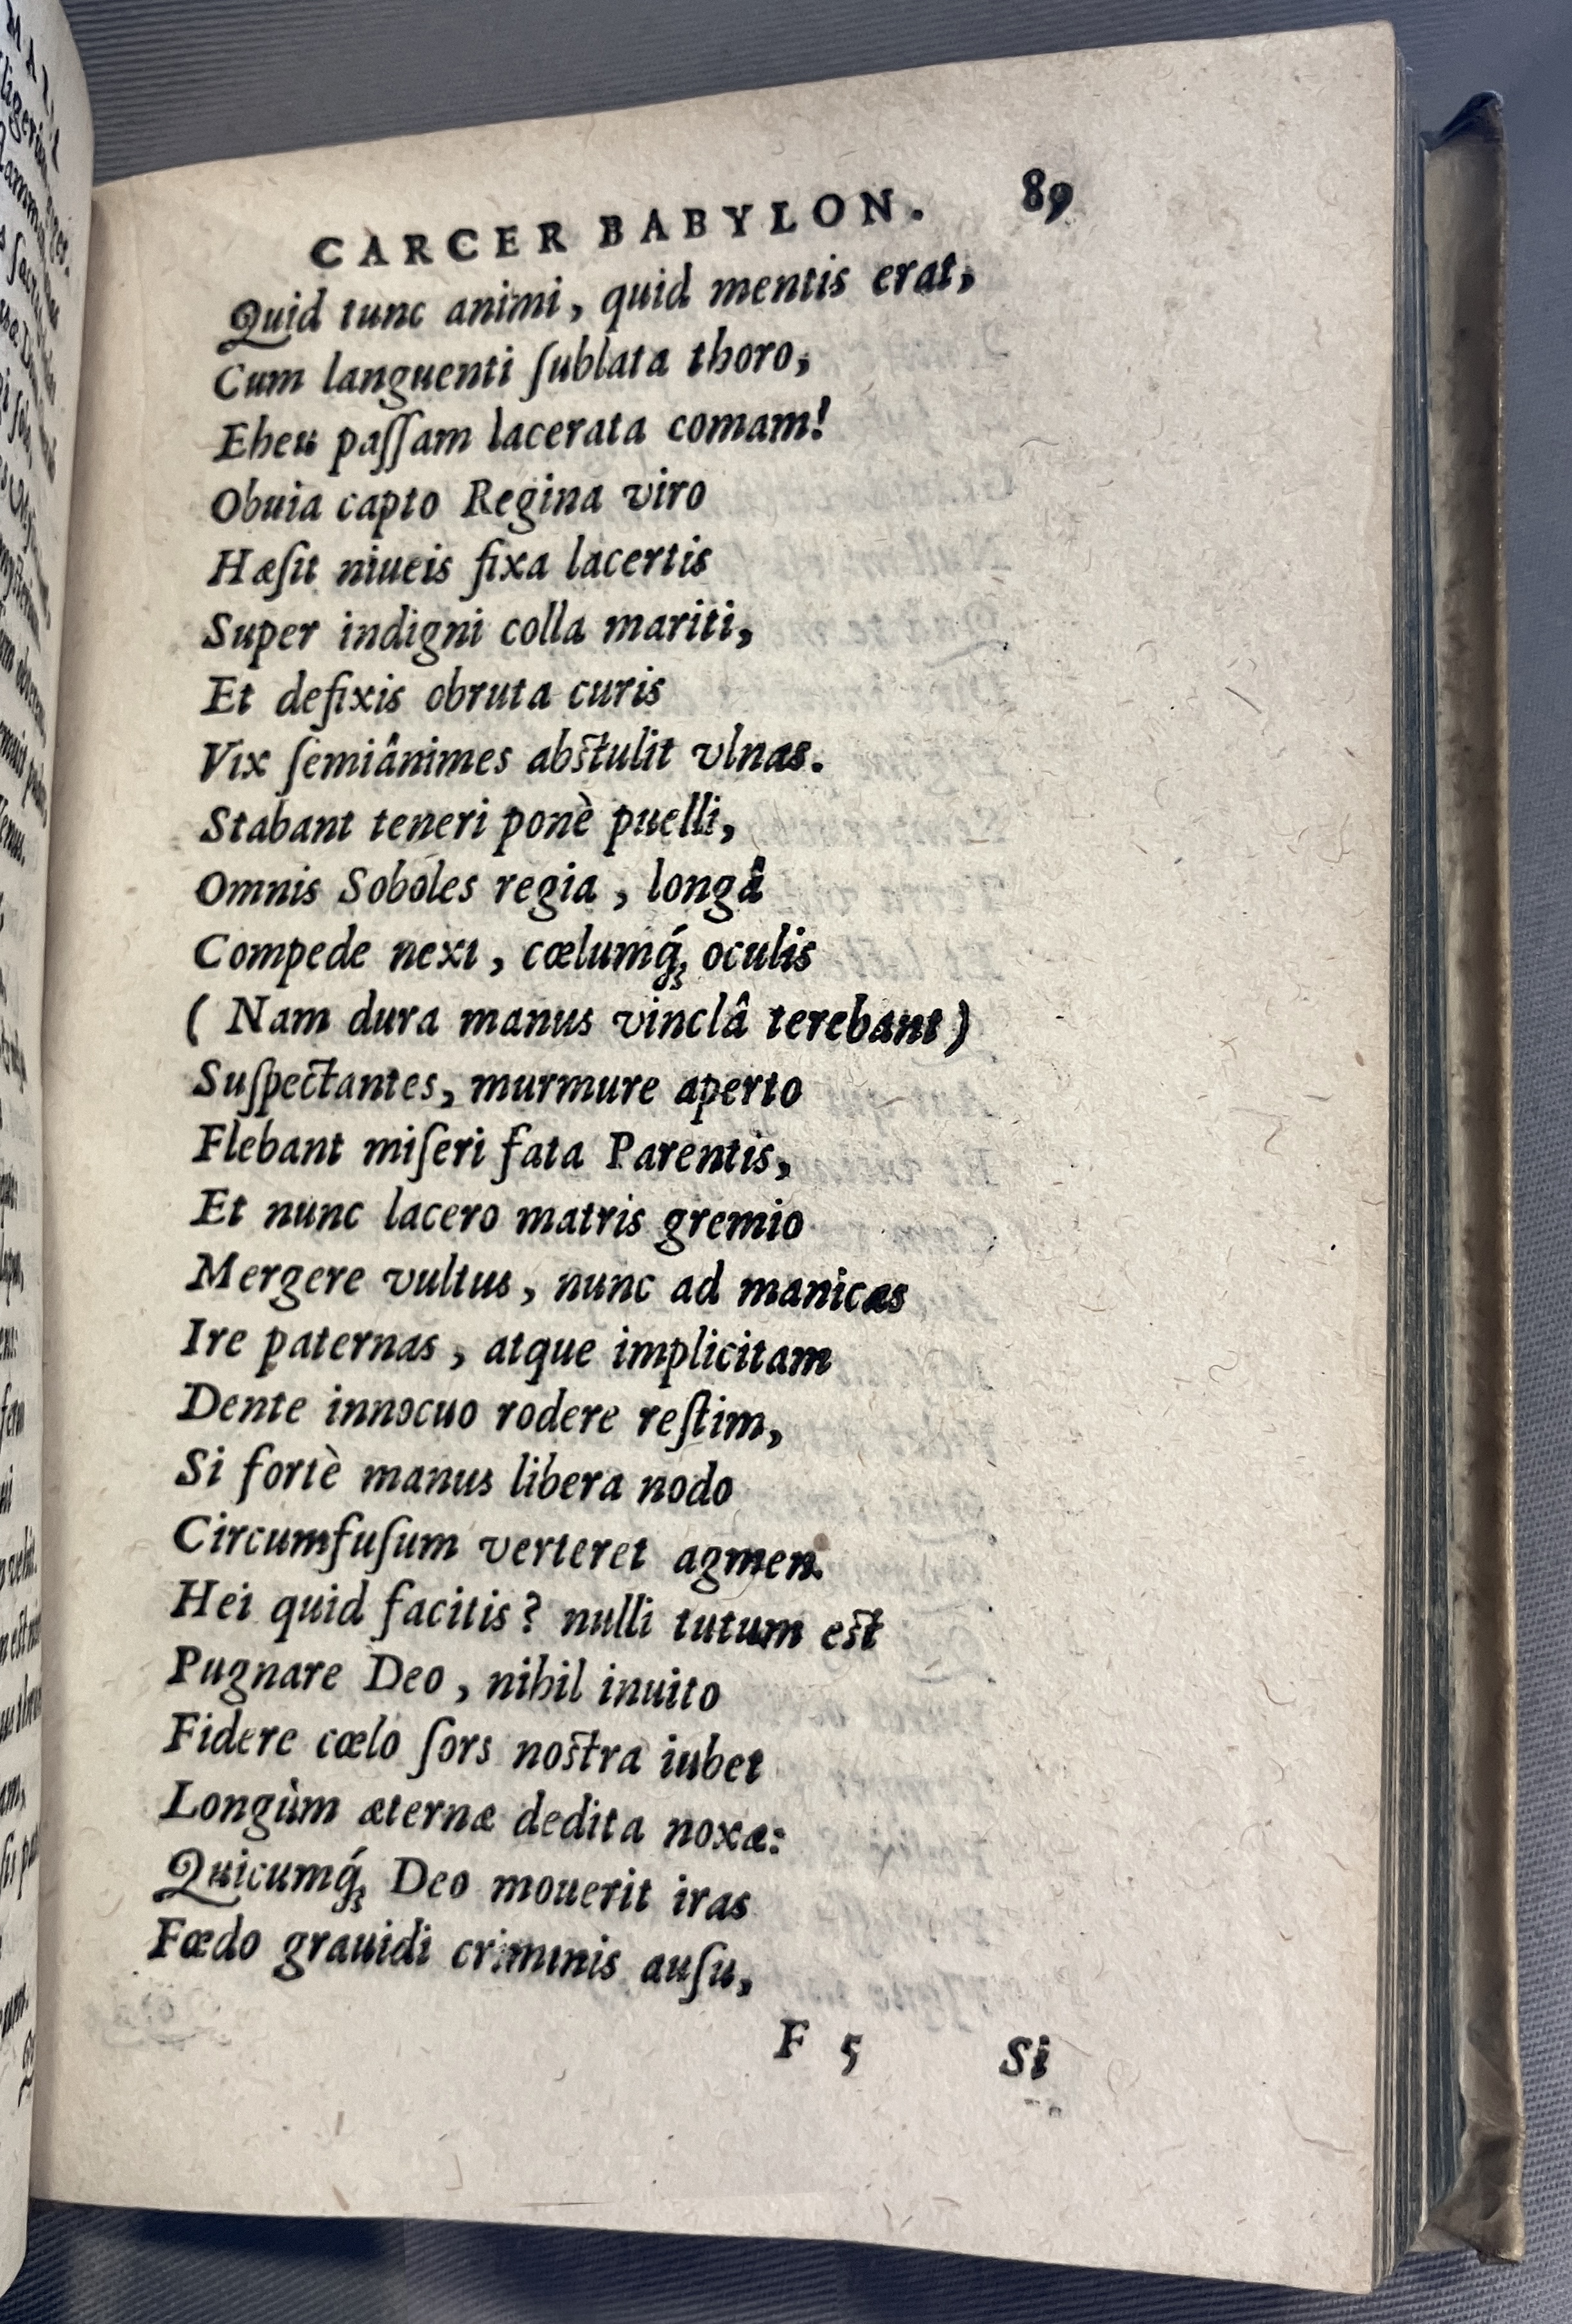 CARCER BABYLON. 89
Quid tunc animi, quid mentis erat,
Cum languenti ſublata thoro,
Eheu paſſam lacerata comam!
Obuia capto Regina viro
Hæſit niueis fixa lacertis
Super indigni colla mariti,
Et defixis obruta curis
Vix ſemiânimes abſtulit vlnas.
Stabant teneri ponè puelli,
Omnis Soboles regia, longâ
Compede nexi, cœlumq́; oculis
( Nam dura manus vinclâ terebant)
Suſpectantes, murmure aperto
Flebant miſeri fata Parentis,
Et nunc lacero matris gremio
Mergere vultus, nunc ad manicas
Ire paternas, atque implicitam
Dente innocuo rodere reſtim,
Si fortè manus libera nodo
Circumfuſum verteret agmen.
Hei quid facitis? nulli tutum eſt
Pugnare Deo, nihil inuito
Fidere cœlo ſors noſtra iubet
Longùm æternæ dedita noxæ:
Quicumq́; Deo mouerit iras
Fœdo grauidi criminis auſu,
F 5 Si